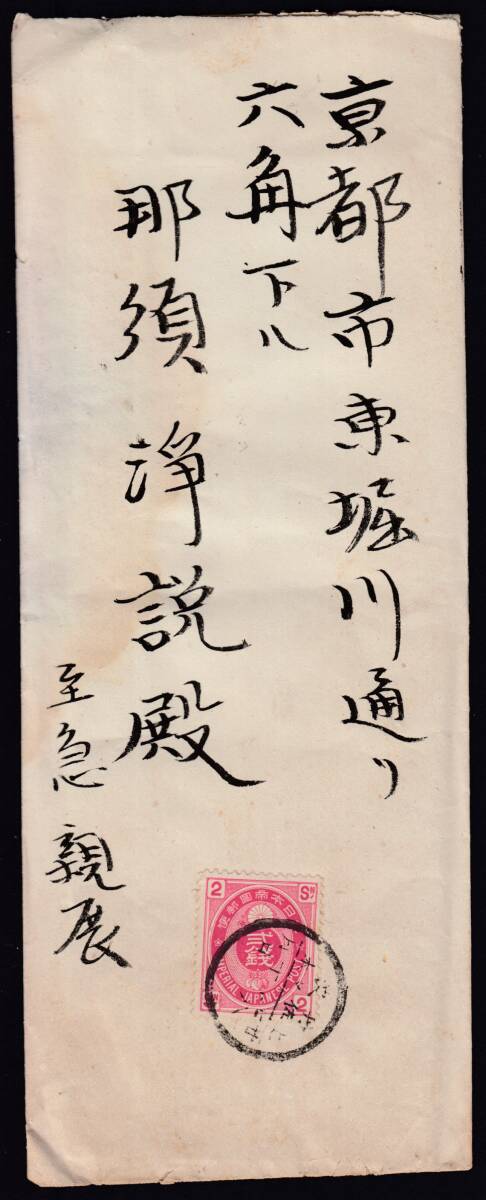 京都市東堀川通り
六角下ル
那須浄説殿
至急 親展
大日本帝國郵便
2 Sɴ
貳銭
IMPERIAL JAPANESE POST
2